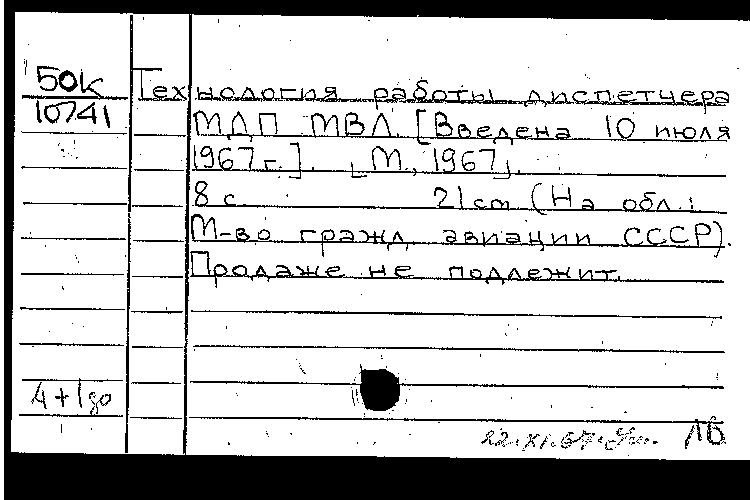 50К Технология работы диспетчера
10741 МДП МВЛ. [Введена 10 июля
1967 г.]. [М., 1967].
8 с. 21 см (На обл.:
М-во гражд. авиации СССР).
Продаже не подлежит.
4+1
22.XI.67 ЛБ